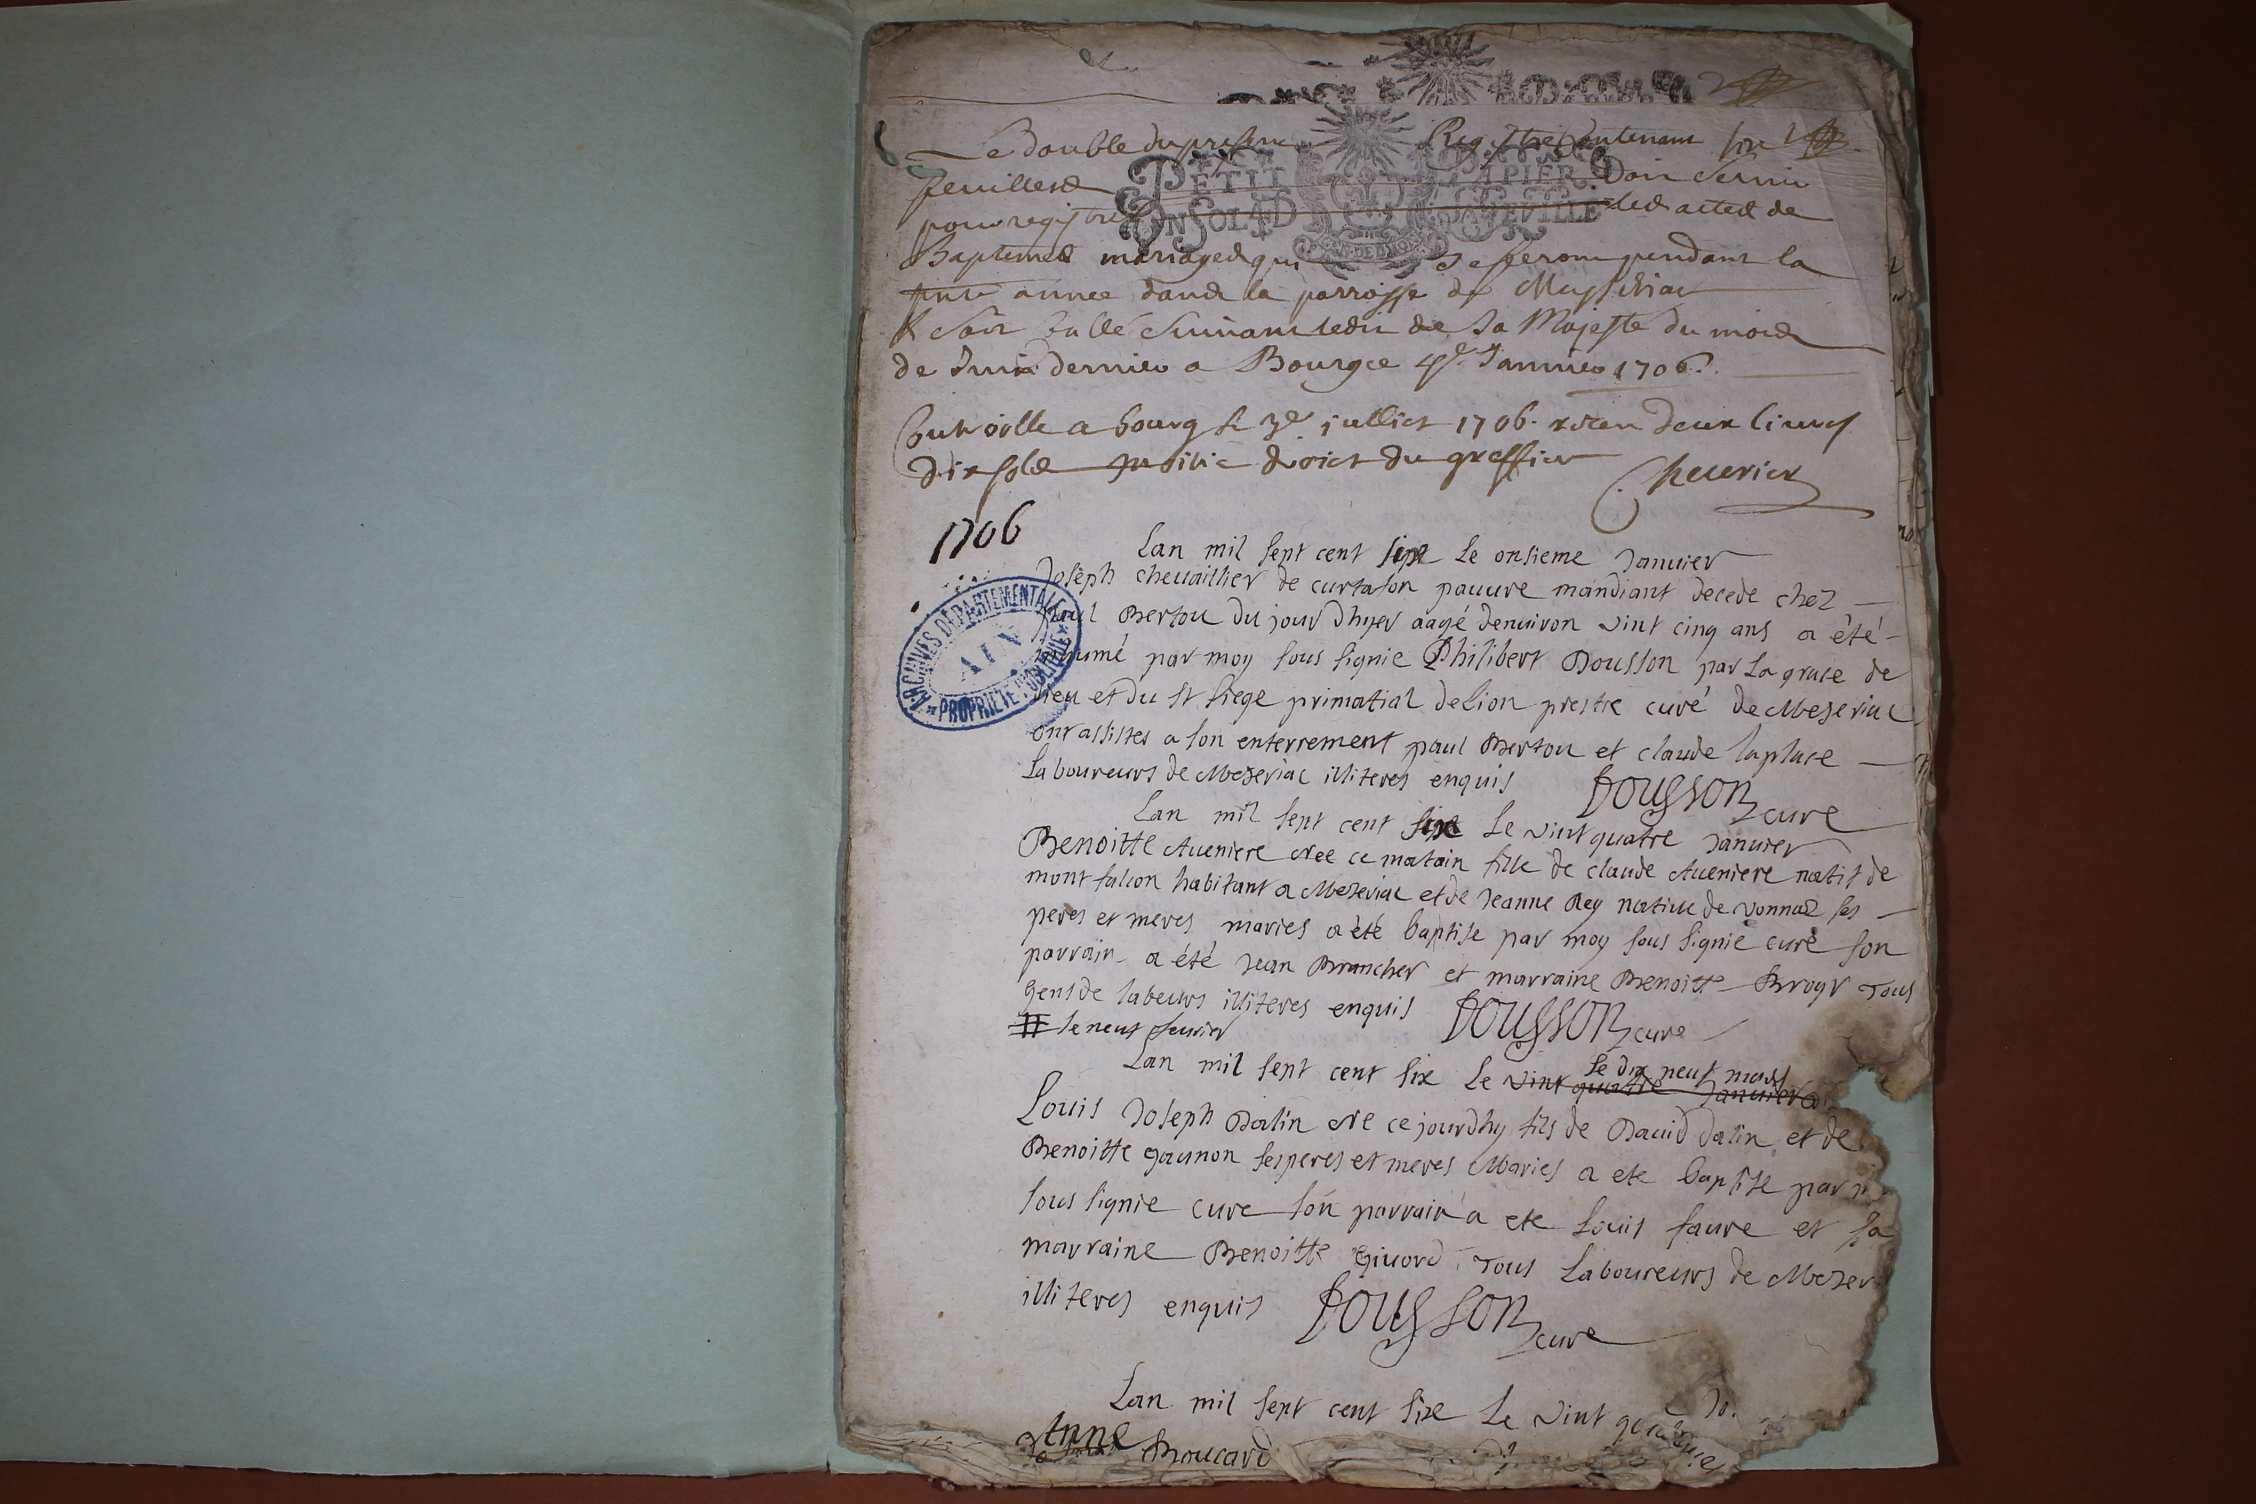 Le double du present Registre Contenant
feuilletz doit servir
pour registre les actes de
Baptemes mariages qui se feront pendant la
pnte annee dans la parroisse de
suivant ledit de Sa Majesté du mois
de Juin dernier a Bourg ce 4e Janvier 1706.
PETIT PAPIER
UN SOL 4 D LA FEVILLE
GEN. DE DIJON
Controlle a bourg le 3e julliet 1706. deux livres
dix sols moitié droict du greffier
Cheurier
1706
ARCHIVES DEPARTEMENTALES
AIN
PROPRIÉTÉ PUBLIQUE
Lan mil sept cent sixe Le onsieme Janvier
Joseph chevaillier de curtafon pauvre mandiant decede chez
paul Bertou du jour dhyer aagé denviron vint cinq ans a été
inhumé par moy sous signie Philibert Dousson par la grace de
Dieu et du St siege primatial de Lion prestre curé de Mezeriac
ont assistes a son enterrement paul Bertou et claude laplace
Laboureurs de Mezeriac illiteres enquis Dousson cure
Lan mil sept cent sixe Le vint quatre Janvier
Benoitte Aveniere née ce matain fille de claude Aveniere natif de
montfalcon habitant a Mezeriac et de Jeanne Rey native de vonnaz ses
peres et meres maries a été baptise par moy sous signie curé son
parrain a été Jean Brancher et marraine Benoitte Broyr Tous
gens de labeurs illiteres enquis Dousson cure
# le neuf fevrier
Lan mil sept cent six Le vint quatre Janvier
Le dix neuf mars
Louis Joseph Dalin né ce jourdhy fils de David dalin et de
Benoitte gaunon ses peres et meres Maries a ete baptise par
sous signie cure son parrain a ete Louis faure et sa
marraine Benoitte givord Tous Laboureurs de Mezer
illiteres enquis Dousson cure
Lan mil sept cent sixe Le vint
Anne Boucard